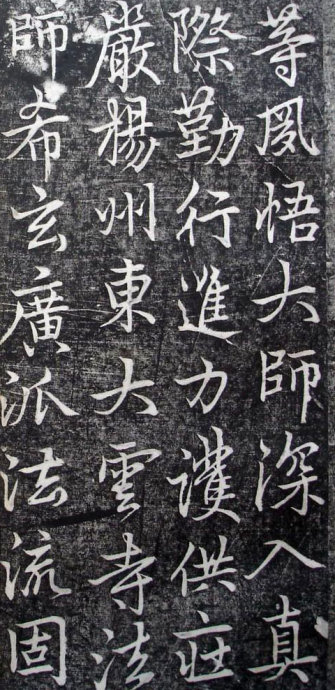 等夙悟大師深入真
際勤行進力護供莊
嚴楊州東大雲寺法
師希玄廣派法流固